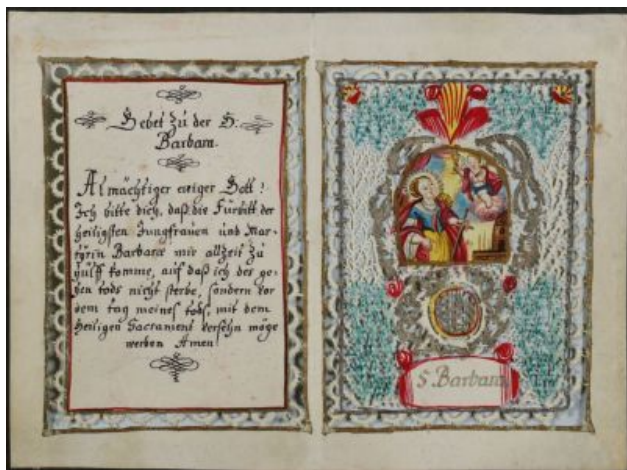 Gebet zu der S:
Barbara.
Allmächtiger ewiger Gott!
Ich bitte dich, daß die Fürbitt der
heiligsten Jungfrauen und Mar-
tyrin Barbaræ mir allzeit zu
hülff komme, auf daß ich des ge-
hen tods nicht sterbe, sondern vor
dem tag meines tods, mit dem
heiligen Sacrament versehn möge
werden Amen!
S. Barbara